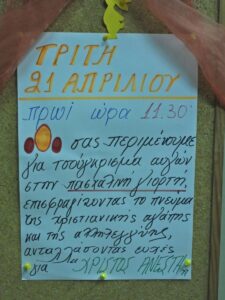 ΤΡΙΤΗ
21 ΑΠΡΙΛΙΟΥ
πρωί ώρα 11.30'
σας περιμένουμε
για τσούγκρισμα αυγών
στην πασχαλινή γιορτή,
επισφραγίζοντας το πνεύμα
της χριστιανικής αγάπης
και της αλληλεγγύης,
ανταλλάσοντας ευχές
για ΧΡΙΣΤΟΣ ΑΝΕΣΤΗ